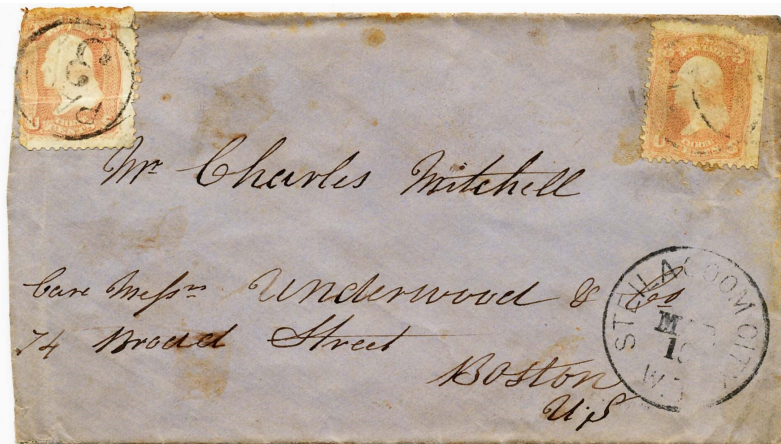 PAID
Mr Charles Mitchell
Care Messrs Underwood & Co
74 Broad Street
Boston
U.S
STEILACOOM CITY
W.T.